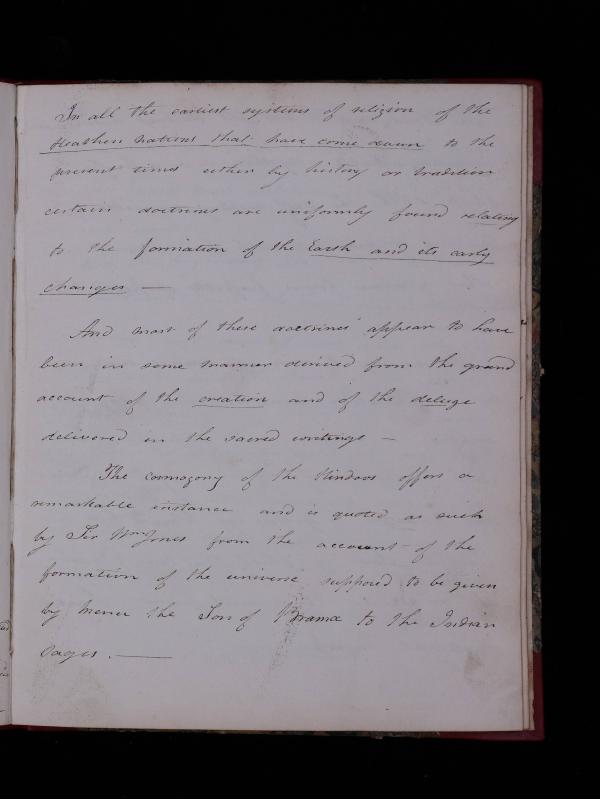 In all the earliest systems of religion of the
Heathen nations that have come down to the
present times either by history or tradition
certain doctrines are uniformly found relating
to the formation of the Earth and its early
changes —
And most of these doctrines appear to have
been in some manner derived from the grand
account of the creation and of the deluge
delivered in the sacred writings —
The cosmogony of the Hindoos offers a
remarkable instance and is quoted as such
by Sir Wm Jones from the account of the
formation of the universe supposed to be given
by Menu the Son of Brama to the Indian
Sages. —